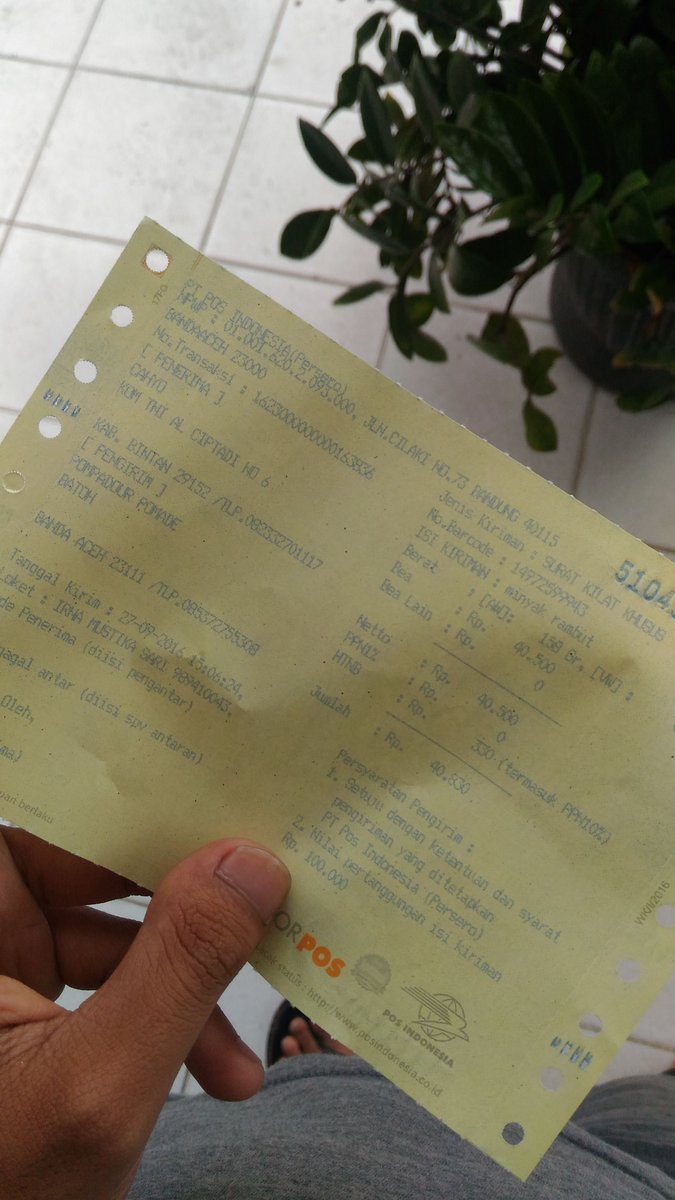 PT POS INDONESIA(Persero)
NPWP : 01.001.620.2.093.000, JLN.CILAKI NO.73 BANDUNG 40115
BANDAACEH 23000
No.Transaksi : 1623000000000163836
[ PENERIMA ]
CAHYO
KOM TNI AL CIPTADI NO 6
KAB. BINTAN 29152 /TLP.082332701117
[ PENGIRIM ]
POMPADOUR POMADE
BATOH
BANDA ACEH 23111 /TLP.085372755308
Tanggal Kirim : 27-09-2016 15:06:24,
Loket : IRMA MUSTIKA SARI 989410043,
Penerima (diisi pengantar)
antar (diisi spv antaran)
Oleh,
berlaku
Jenis Kiriman : SURAT KILAT KHUSUS
No.Barcode : 14972599943
ISI KIRIMAN : minyak rambut
Berat : [AW]: 158 Gr, [VW] :
Bea : Rp. 40.500
Bea Lain : Rp. 0
Netto : Rp. 40.500
PPN1% : Rp. 0
HTNB : Rp. 330 (termasuk PPN10%)
Jumlah : Rp. 40.830
Persyaratan Pengirim :
1. Setuju dengan ketentuan dan syarat
pengiriman yang ditetapkan
PT Pos Indonesia (Persero)
2. Nilai pertanggungan isi kiriman
Rp. 100.000
5104
POS
POS INDONESIA
status : http://www.posindonesia.co.id